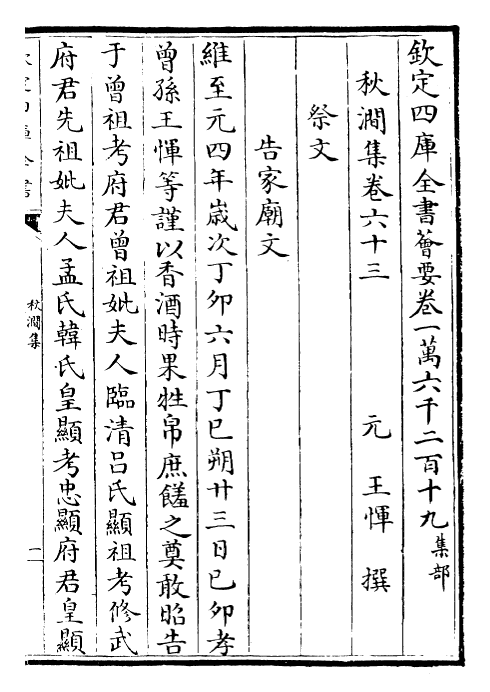 欽定四庫全書薈要卷一萬六千二百十九集部
秋澗集卷六十三
元 王惲 撰
祭文
告家廟文
維至元四年歲次丁卯六月丁巳朔廿三日己卯孝
曾孫王惲等謹以香酒時果牲帛庶饈之奠敢昭告
于曾祖考府君曾祖妣夫人臨清呂氏顯祖考修武
府君先祖妣夫人孟氏韓氏皇顯考忠顯府君皇顯
秋澗集
二